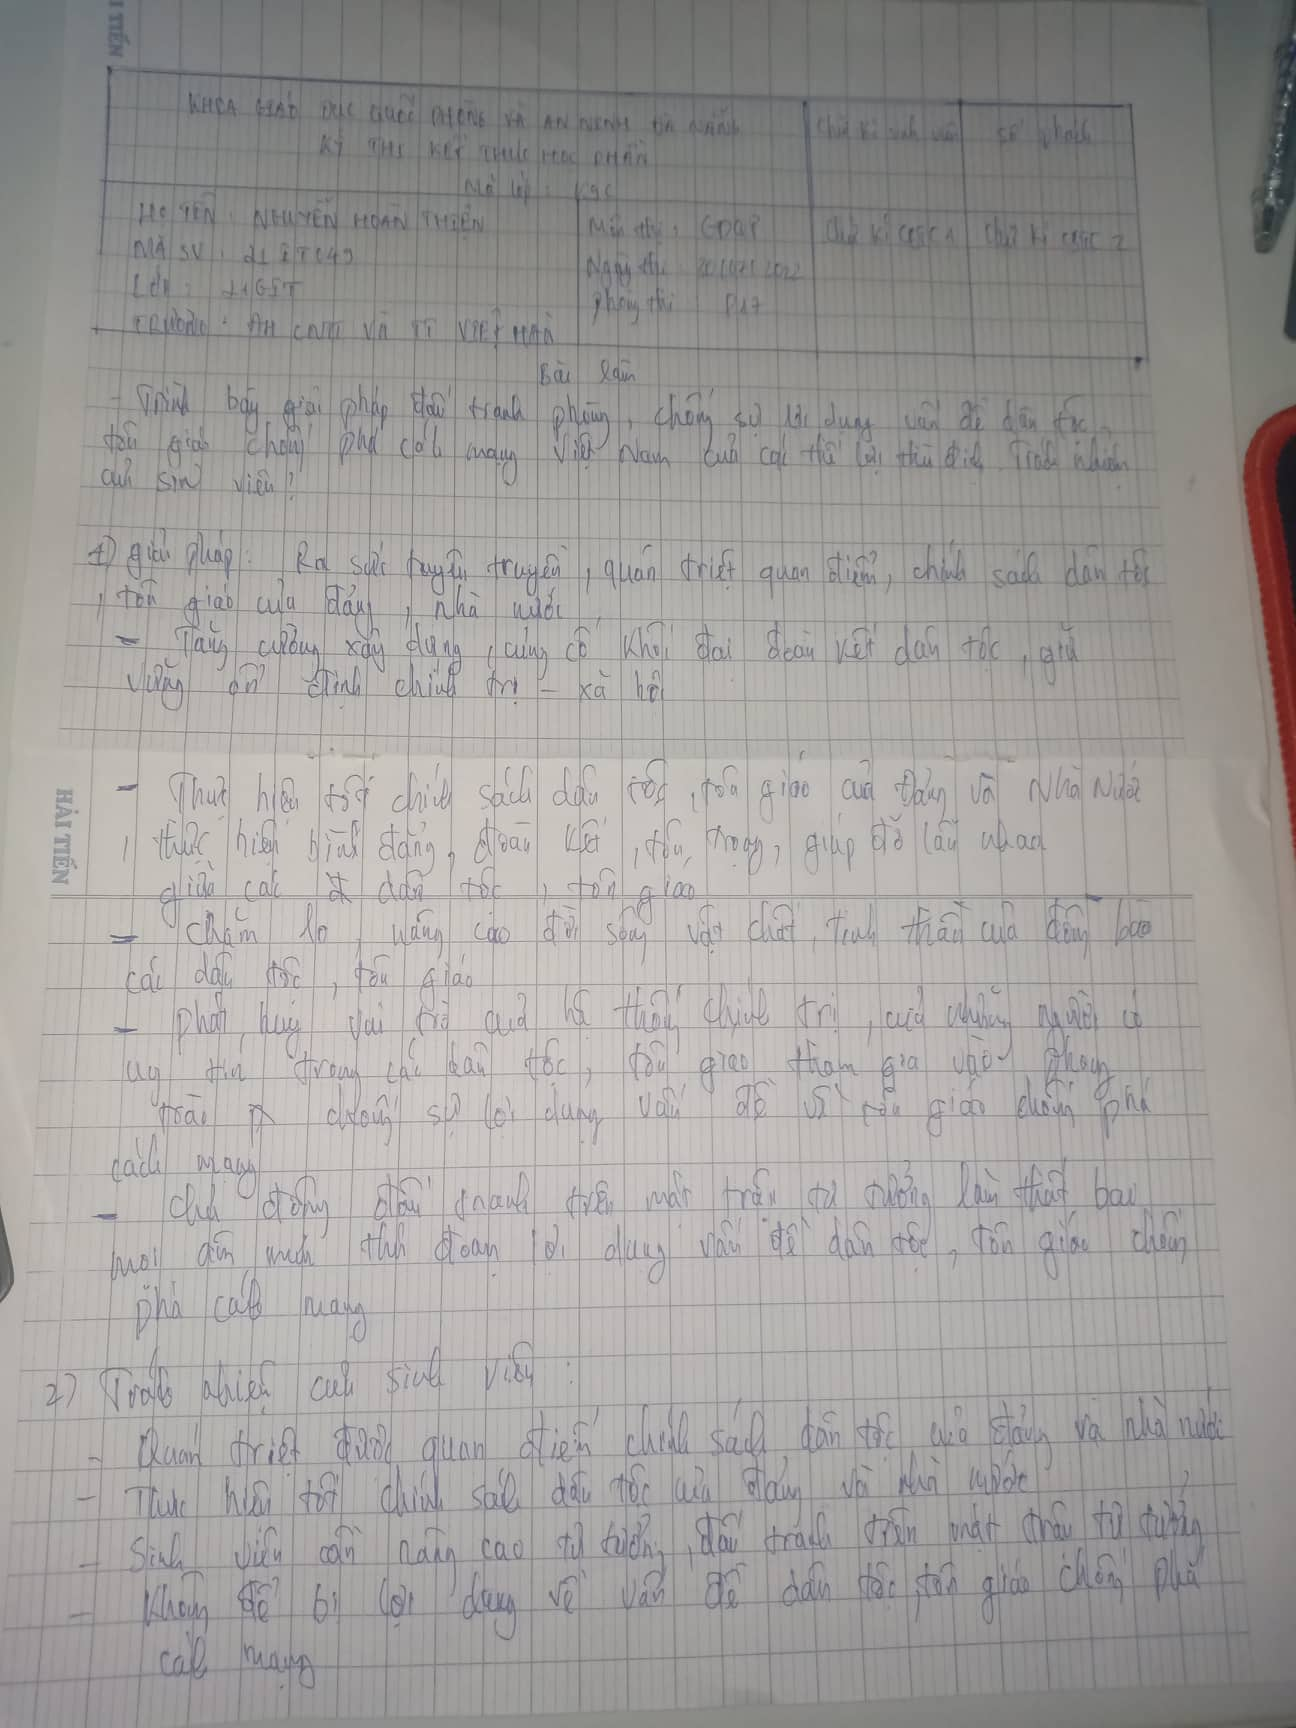 HẢI TIẾN
KHOA GIÁO DỤC QUỐC PHÒNG VÀ AN NINH ĐÀ NẴNG
Chữ kí sinh viên
số phách
KỲ THI KẾT THÚC HỌC PHẦN
Mã lớp: K9C
HỌ TÊN: NGUYỄN HOÀN THIỆN
Môn thi: GDQP
Chữ kí CBCT 1
Chữ kí CBCT 2
MÃ SV: 21IT649
Ngày thi
2022
Lớp: 21GIT
Phòng thi
TRƯỜNG: ĐH CNTT VÀ TT VIỆT HÀN
Bài làm
- Trình bày giải pháp đấu tranh phòng, chống sự lợi dụng vấn đề dân tộc,
tôn giáo chống phá cách mạng Việt Nam của các thế lực thù địch. Trách nhiệm
của sinh viên?
1) giải pháp: Ra sức tuyên truyền, quán triệt quan điểm, chính sách dân tộc
, tôn giáo của đảng, nhà nước,
- Tăng cường xây dựng, củng cố khối đại đoàn kết dân tộc, giữ
vững ổn định chính trị - xã hội
- Thực hiện tốt chính sách dân tộc, tôn giáo của Đảng và Nhà Nước
, thực hiện bình đẳng, đoàn kết, tôn trọng, giúp đỡ lẫn nhau
giữa các dân tộc, tôn giáo
HẢI TIẾN
- Chăm lo, nâng cao đời sống vật chất, tinh thần của đồng bào
các dân tộc, tôn giáo
- phát huy vai trò của hệ thống chính trị, của những người có
uy tín trong các dân tộc, tôn giáo tham gia vào phong
trào chống sự lợi dụng vấn đề tôn giáo chống phá
cách mạng
- Chủ động đấu tranh trên mặt trận tư tưởng làm thất bại
mọi âm mưu thủ đoạn lợi dụng vấn đề dân tộc, tôn giáo chống
phá cách mạng
2) Trách nhiệm của sinh viên:
- Quán triệt được quan điểm chính sách dân tộc của đảng và nhà nước
- Thực hiện tốt chính sách dân tộc của đảng và nhà nước
- Sinh viên cần nâng cao tư tưởng, đấu tranh trên mặt trận tư tưởng
- Không để bị lợi dụng về vấn đề dân tộc, tôn giáo chống phá
cách mạng